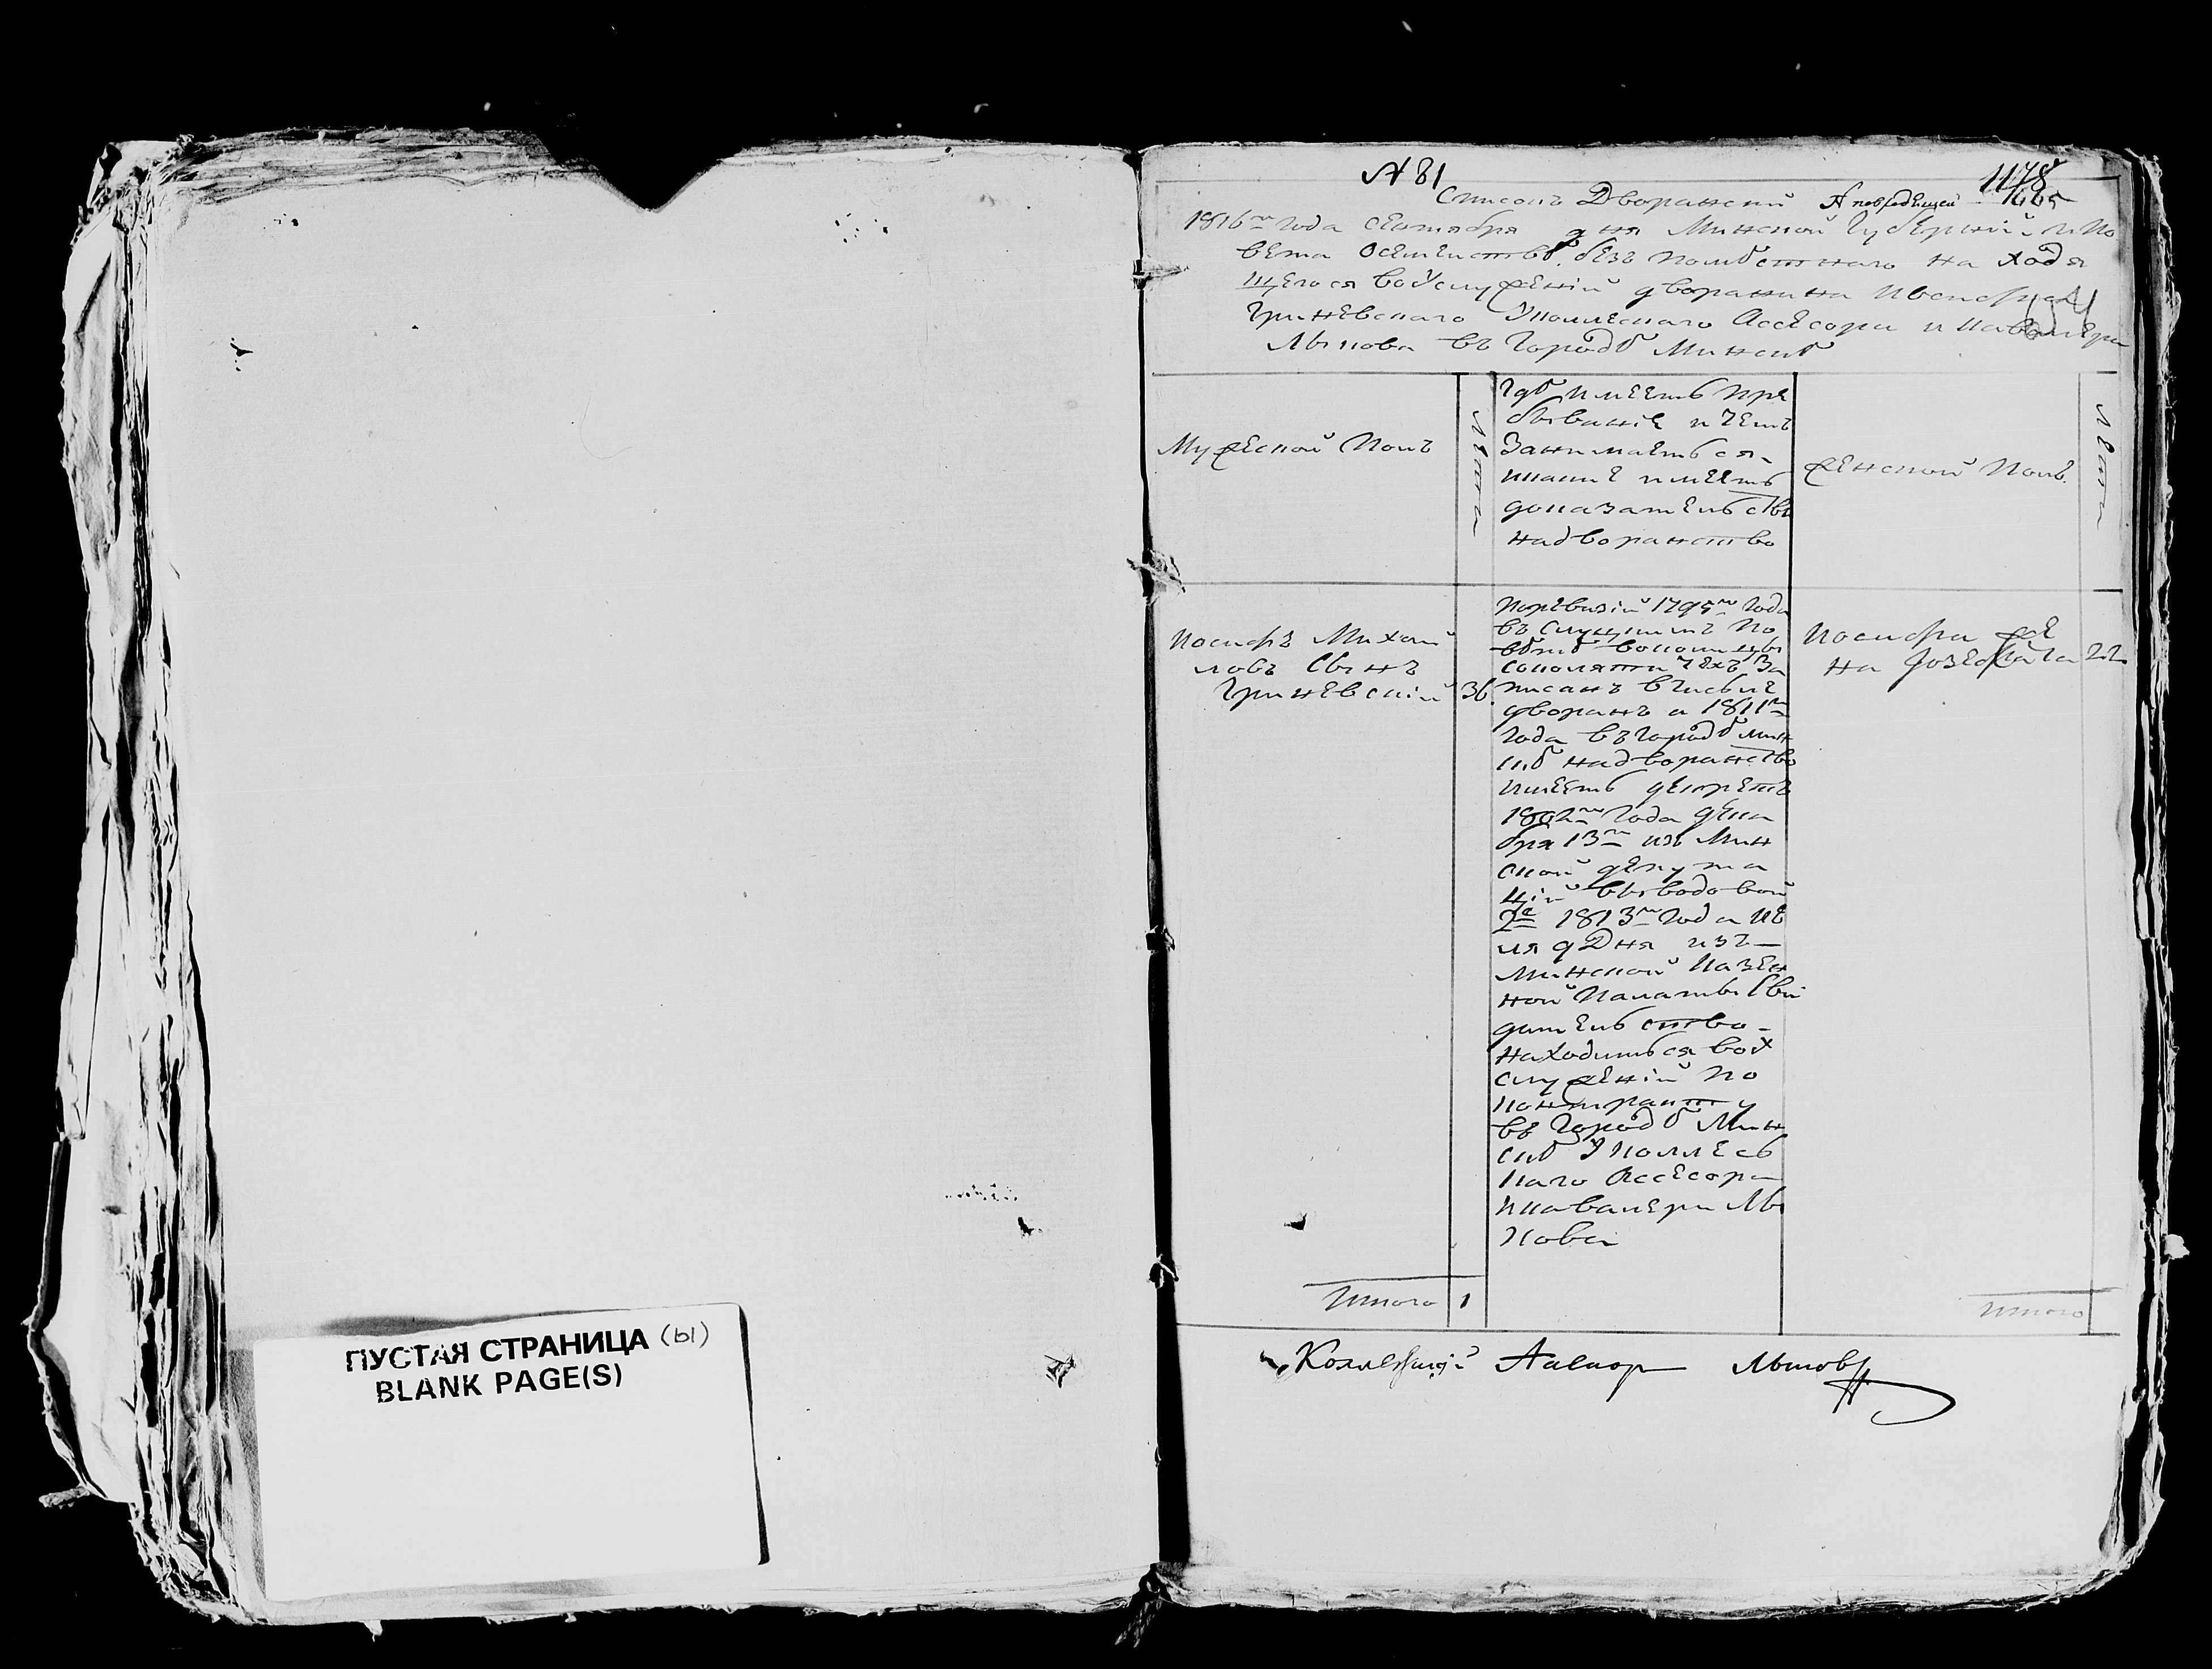 ПУСТАЯ СТРАНИЦА (ы)
BLANK PAGE(S)
№ 81
1178
Списокъ Дворянский
1816го года сентября дня Минской Губерніи и По
вета осемействѣ безъ помѣстнаго на ходя
щегося воуслуженіи дворянина Иосифа
Гриневскаго Уколлескаго Ассесора и Кавалера
Лыкова въ Городѣ Минскѣ
Мужеской Полъ
Лета
Гдѣ имеетъ пре
бываніе и чемъ
Занимаеться
икакие имеетъ
доказательствы
надворянство
Женской Полъ.
Лета
Иосифъ Михай
ловъ Сынъ
Гриневскій
36
поревизіи 1795го Года
въ Слуцкимъ По
ветѣ воколицы
За
писанъ вчисле
дворянъ а 1811го
года въ городѣ Мин
скѣ надворянство
имеетъ декретъ
1802го Года дека
бря 13го изъ Мин
ской депута
ціи выводовой
2е 1813го года Ию
ля 9 Дня изъ
Минской Казен
ной Палаты Сви
дительство
находиться воу
служеніи по
контракту
въ Городѣ Мин
скѣ Уколлесь
каго Ассесора
икавалера Лы
кова
Иосифа же
на Юзефата
22
Итого
1
Итого
Коллежскій Асесор Лыковъ